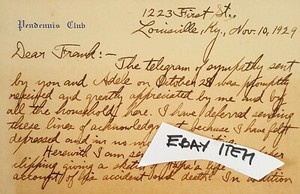 Pendennis Club
1223 First St.,
Louisville, Ky., Nov. 10, 1929
Dear Friend:-
The telegram of sympathy sent
by you and Adele on October 28 was promptly
received and greatly appreciated by me and by
all the household here. I have deferred sending
these lines of because I have felt
depressed and in no
EBAY ITEM
Herewith I am
clipping giving a life
account of the accident and death. In addition